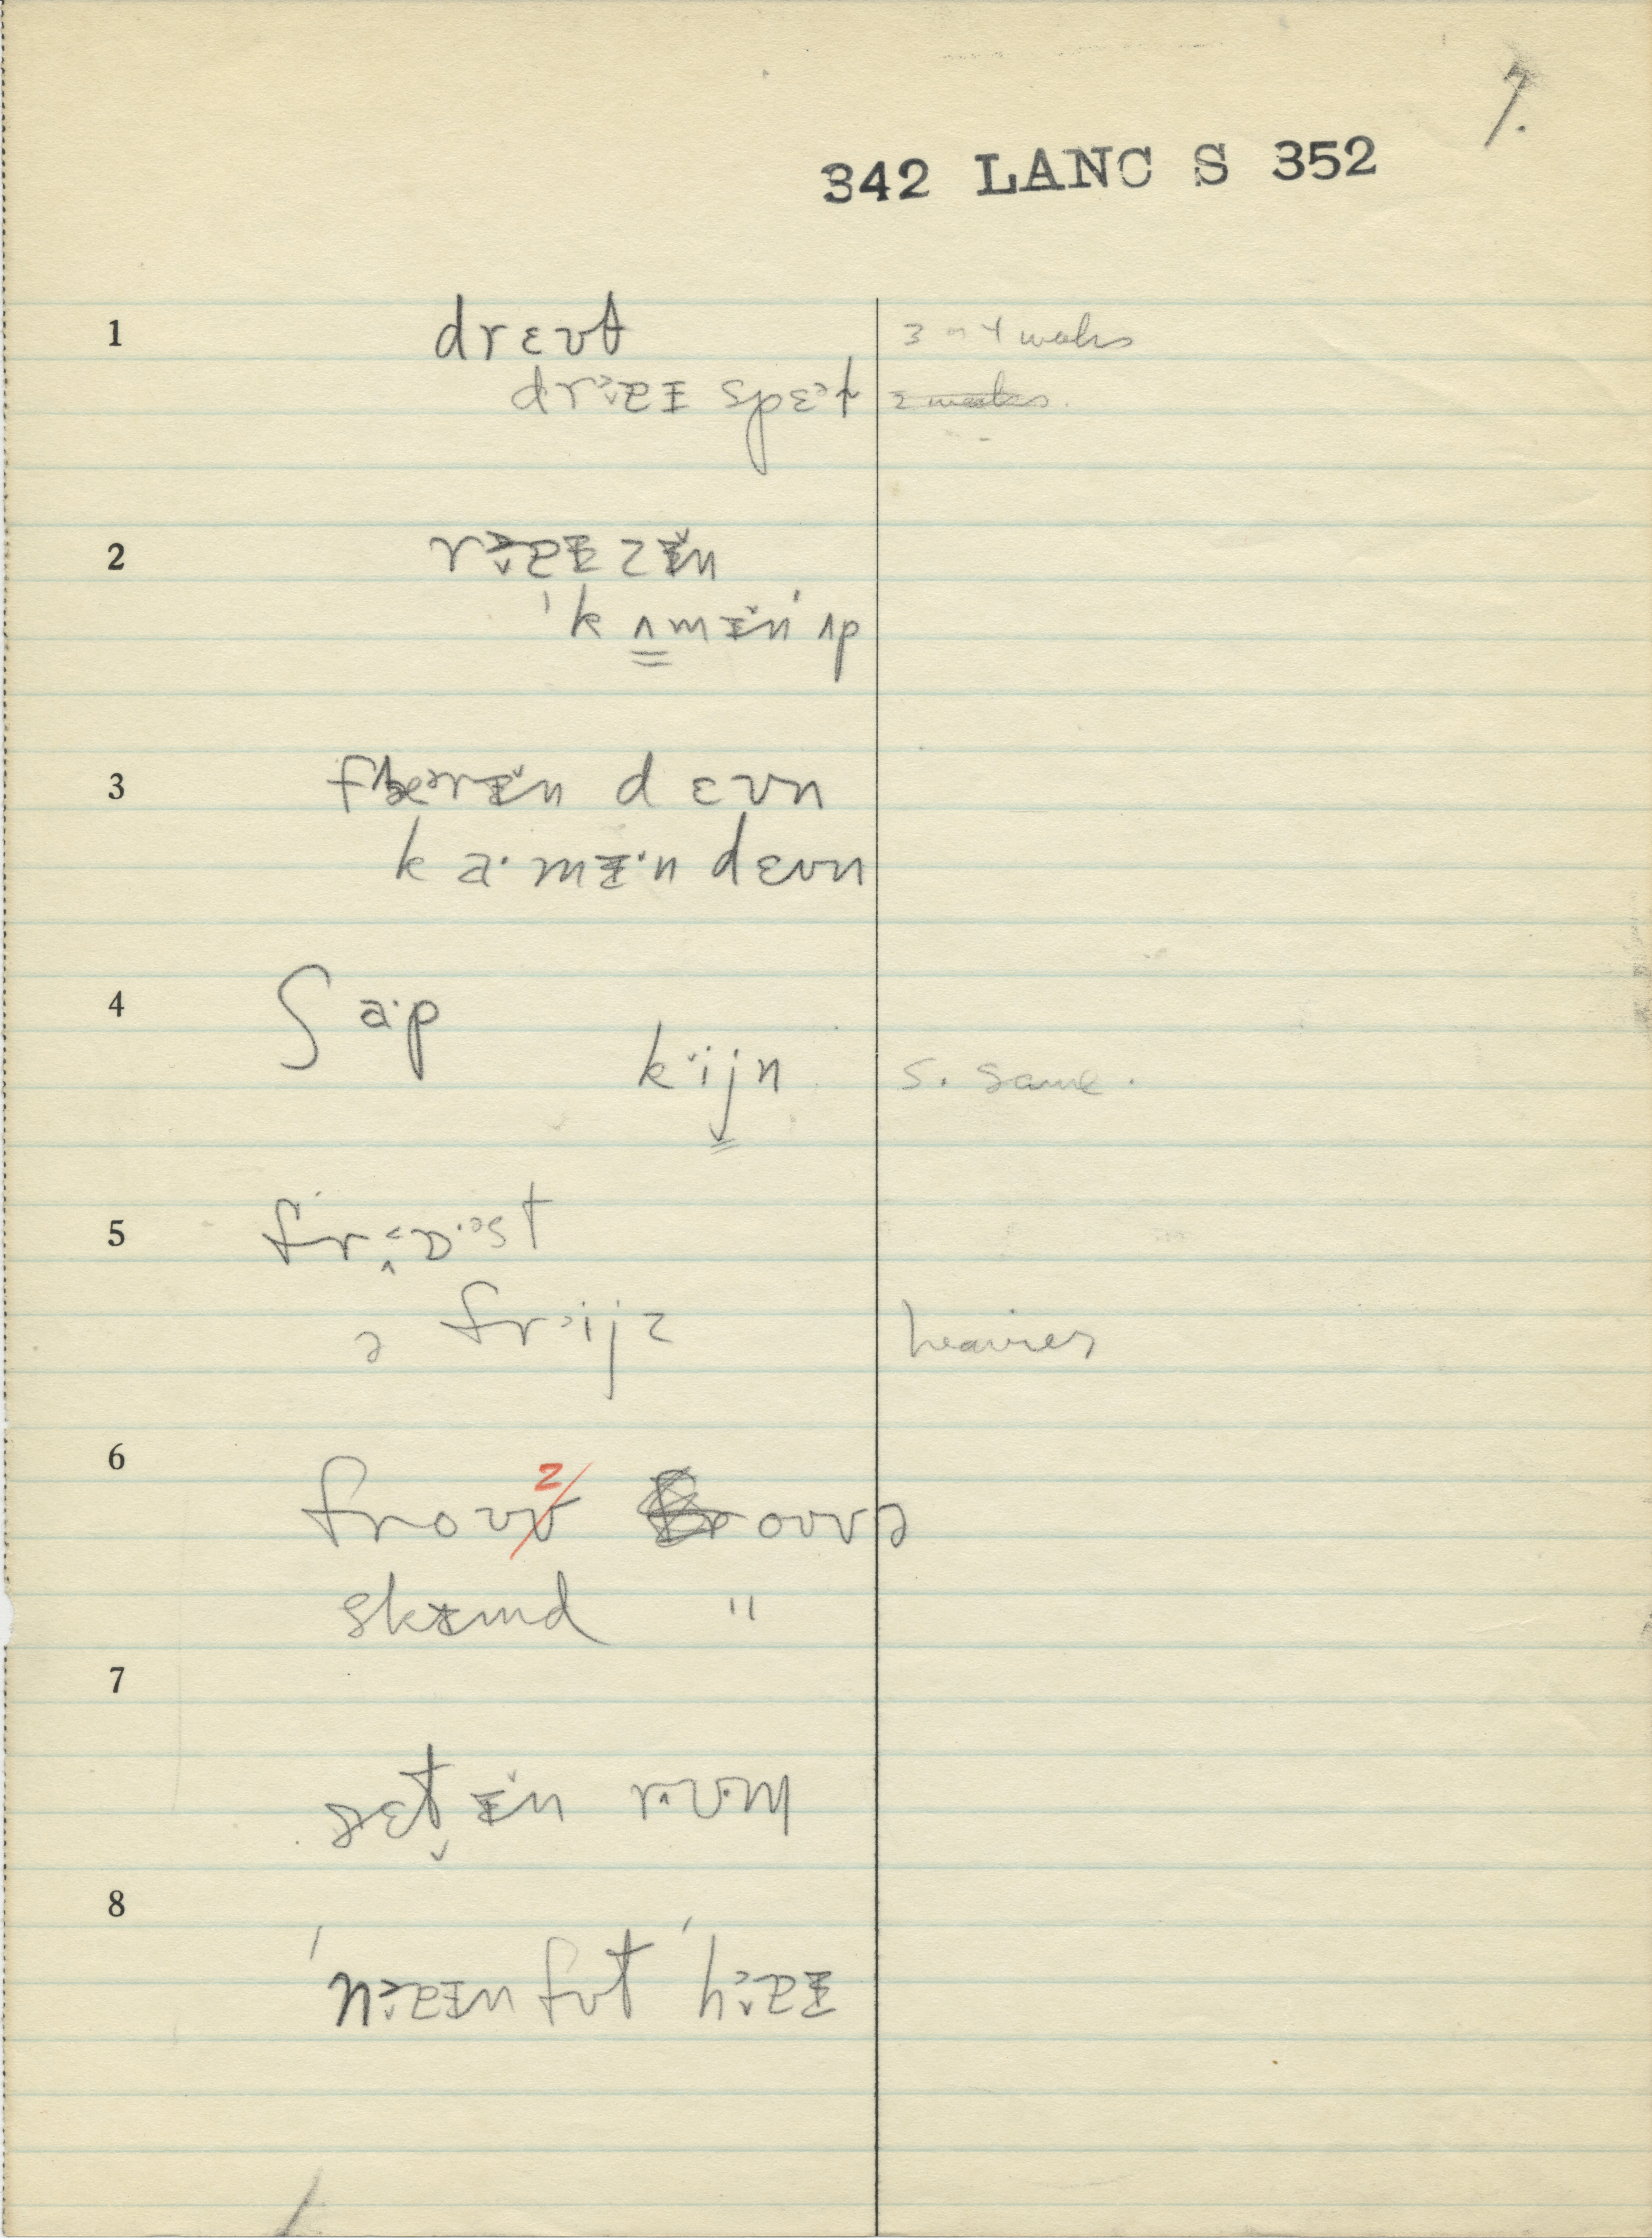 7.
342 LANC S 352
1 drɛʊt 3 or 4 weeks
draɪ spɛət 2 weeks.
2 raɪzɪn
ˈkʌmɪn ˈʌp
3 dɛʊn
ka·mɪ·n dɛʊn
4 ʃa·p
kijn s. same.
5 frɒ·əst
ə frijz heavier
6 froʊz oʊvə
skɪmd "
7
sɛt ɪn rʊm
8
ˈnaɪn fʊt ˈhaɪ